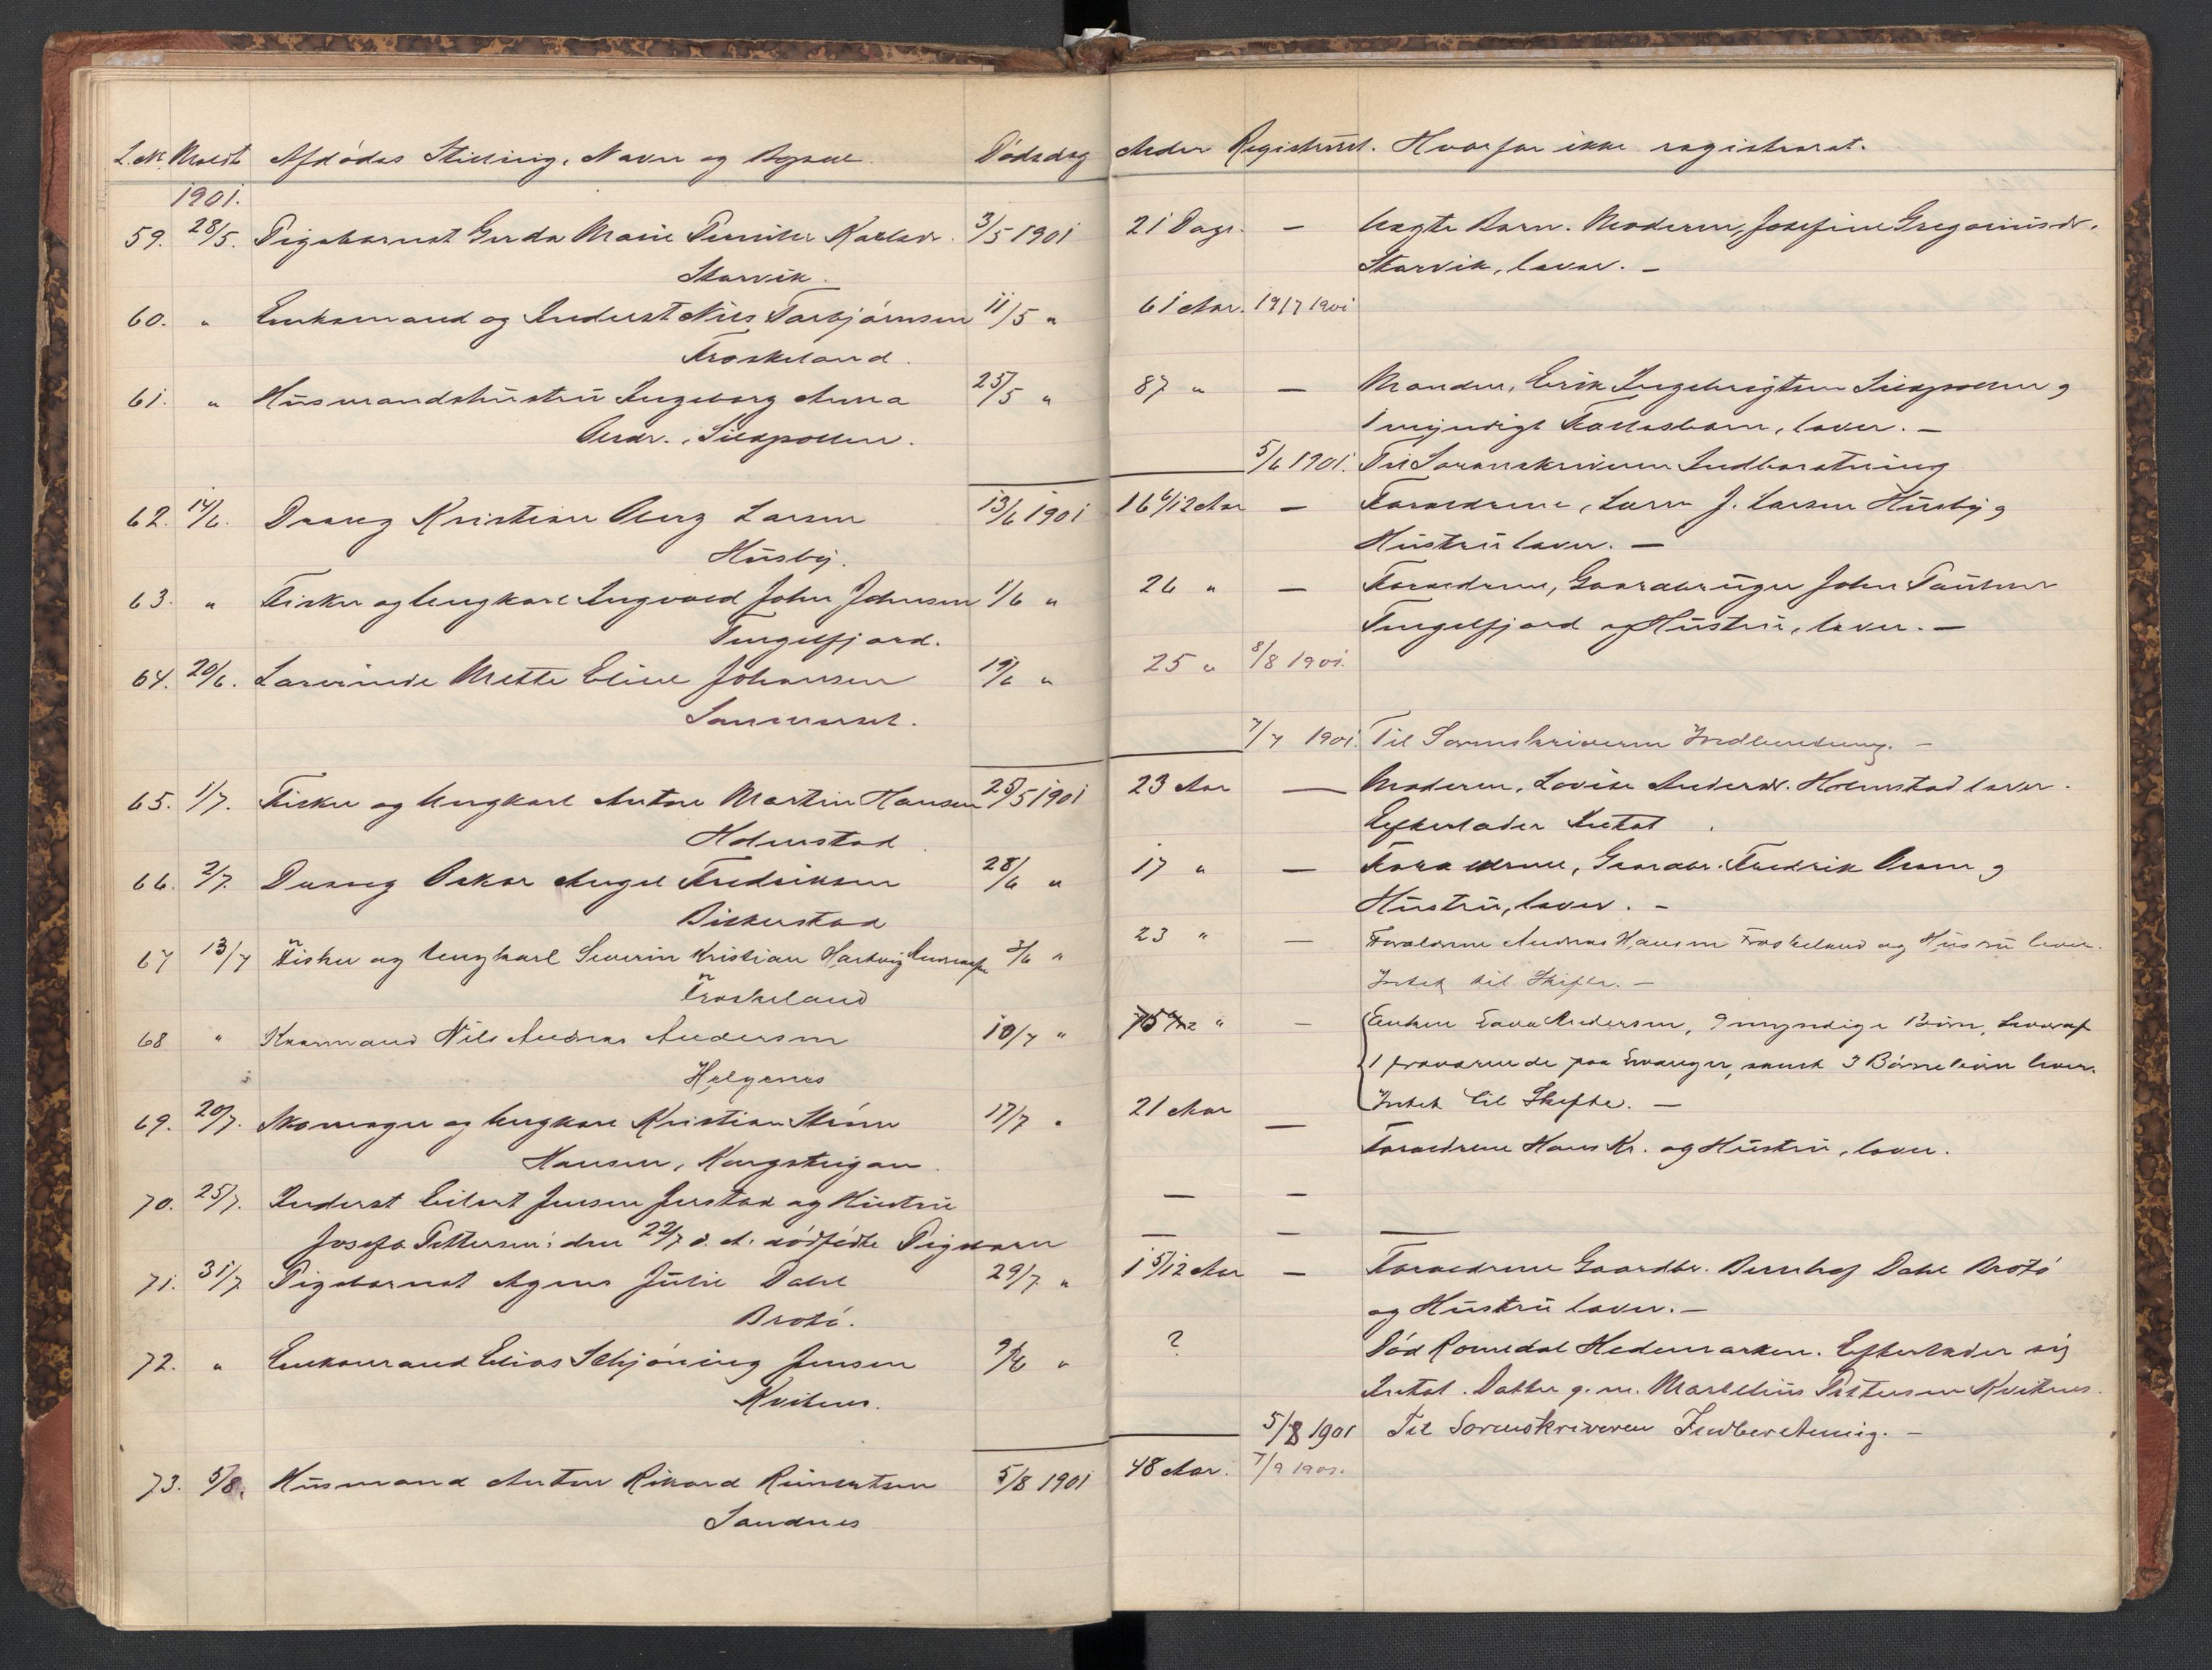 L.N. Meldt Afdødes Stilling, Navn og Bopæl. Dødsdag Alder Registreret. Hvorfor ikke registreret.
1901.
59. 28/5. Pigebarnet Gerda Marie Karlsdr. 3/5 1901 21 Dage. — Uægte Barn. Moderen, Josefine Gregoriusdr.
Skarvik. Skarvik, lever. —
60. " Enkemand og Inderst Nils Torbjørnsen 11/5 " 61 Aar. 19/7 1901
Froskeland.
61. " Husmandshustru Ingeborg Anna 25/5 " 87 " — Manden, Erik Ingebrigtsen Sildpollen og
Olsdr., Sildpollen. 1 myndigt Fællesbarn, lever. —
5/6 1901. Til Sorenskriveren Indberetning
62. 14/6. Dreng Kristian Larsen 13/6 1901 16 6/12 Aar — Forældrene, J. Larsen Husby og
Husby. Hustru lever. —
63. " Fisker og Ungkarl Ingvald John Johnsen 1/6 " 26 " — Forældrene, Gaardbruger John
Tengelfjord. Tengelfjord og Hustru, lever. —
64. 20/6. Lærerinde Mette Eline Johansen 19/6 " 25 " 8/8 1901.
7/7 1901. Til Sorenskriveren Indberetning. —
65. 1/7. Fisker og Ungkarl Anton Martin Hansen 25/5 1901 23 Aar — Moderen, Lovise Andersdr. Holmstad lever.
Holmstad. Efterlader Intet.
66. 2/7. Dreng Oskar Angel Fredriksen 28/6 " 17 " — Forældrene, Gaardbr. Fredrik Olsen og
Bitterstad Hustru, lever. —
67 13/7 Fisker og Ungkarl Severin Kristian Hartvig Andreasen 3/6 " 23 " — Forældrene Andreas Hansen Froskeland og Hustru lever.
Froskeland Intet til Skifte. —
68 " Kaarmand Nils Andreas Andersen 10/7 " 75 " — Enken Andersen, 9 myndige Børn, hvoraf
Helgenes 1 fraværende paa Hvalfangst, samt 3 Børnebørn lever.
Intet til Skifte. —
69. 20/7. Skomager og Ungkarl Kristian Strøm 17/7 " 21 Aar — Forældrene Hans Kr. og Hustru, lever.
Hansen,
70. 25/7. Inderst Eilert Jensen Jerstad og Hustru — —
Josefa Pettersen: den 22/7 d. A. dødfødte Pigebarn — — —
71. 31/7 Pigebarnet Agnes Julie Dahl 29/7 " 1 5/12 Aar — Forældrene Gaardbr. Bernhof Dahl Brotø
Brotø. og Hustru lever. —
72. " Enkemand Elias Schjøning Jensen 9/6 " ? Død Romedal Hedemarken. Efterlader sig
Kvitnes. Intet. Datter g. m. Martelius Pettersen Kvitnes.
5/8 1901 Til Sorenskriveren Indberetning. —
73. 5/8. Husmand Anton Rikard Reinertsen 5/8 1901 48 Aar. 7/9 1901.
Sandnes